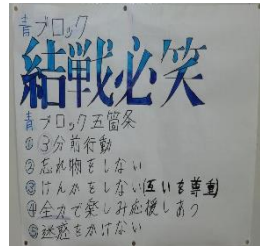 青ブロック
結戦必笑
青ブロック五箇条
①③分前行動
②忘れ物をしない
③けんかをしない(互いを尊重)
④全力で楽しみ応援しあう
⑤迷惑をかけない